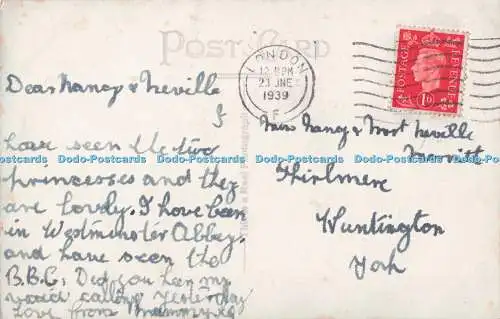 POST CARD
LONDON
12 PM
23 JNE
1939
F
POSTAGE
REVENUE
1D
Dear Nancy & Neville
I
have seen the two
princesses and they
are lovely. I have been
in Westminster Abbey.
and have seen the
B.B.C. Did you hear my
voice calling yesterday
Love from Mummy
This is a Real Photograph
Miss Nancy & Mast Neville
Thirlmere
Huntington
York
Dodo-Postcards Dodo-Postcards Dodo-Postcards Dodo-Postcards Dodo-Postcards Dodo-Postcards